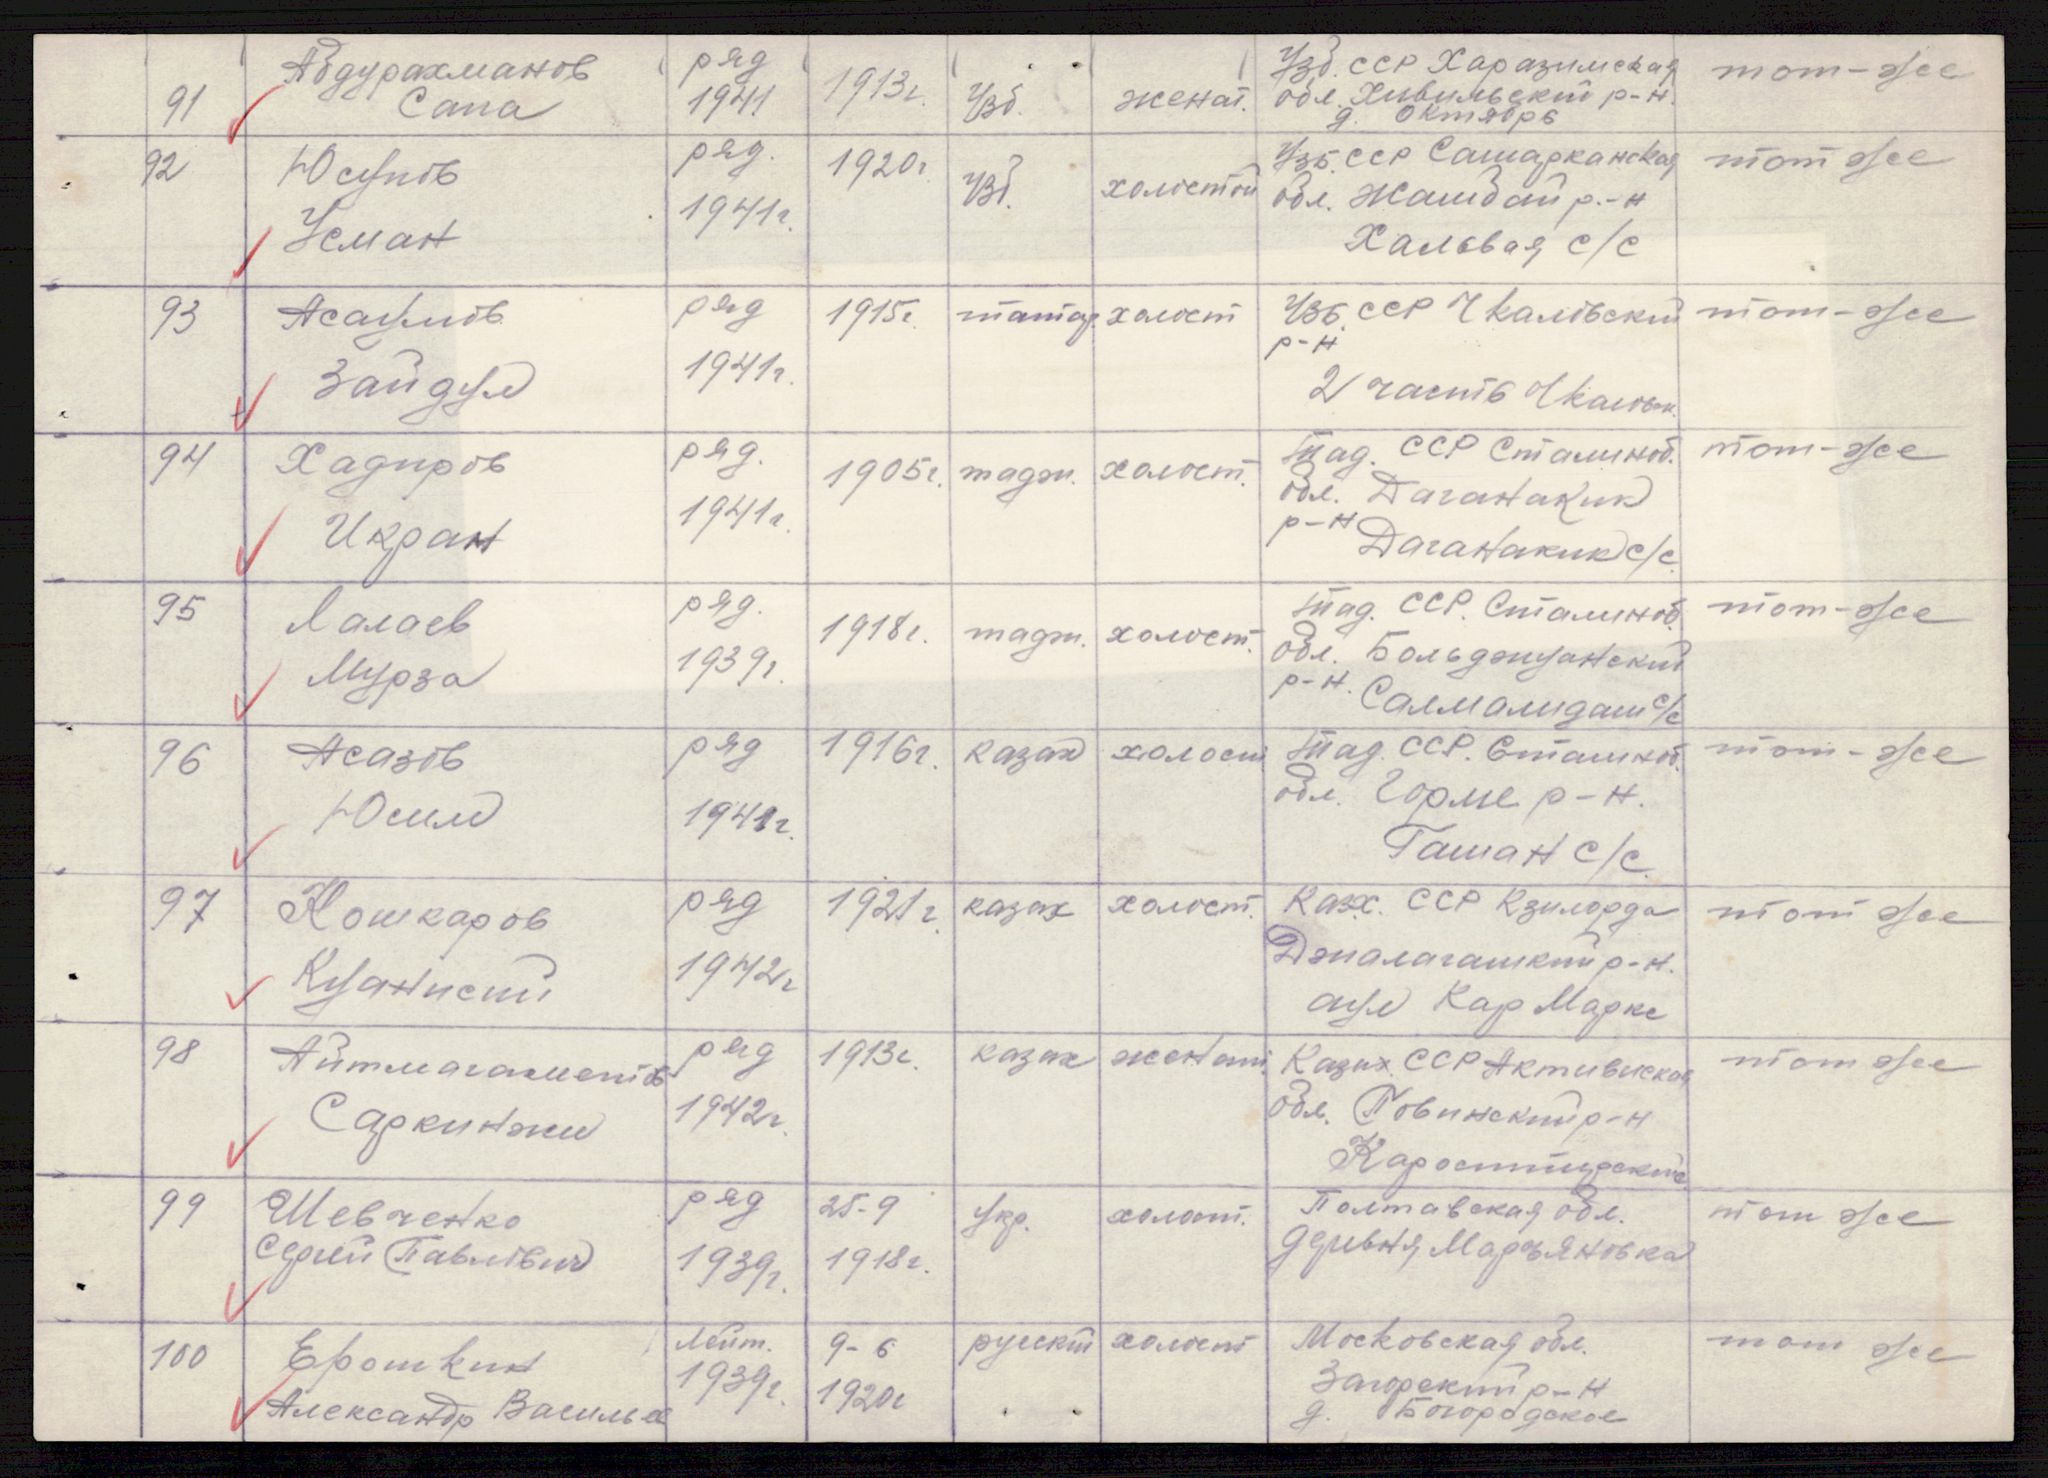 91 Абдурахманов Сапа ряд 1941 1913г. Узб. женат. Узб. ССР Харазимская обл. Хивильский р-н. д. Октябрь тот-же
92 Юсупов Усман ряд. 1941г. 1920г Узб. холостой Узб. ССР Самарканская обл. Жамбай р.-н Хальвая с/с тот же
93 Асаулов Зайдул ряд 1941г. 1915г. татар холост Узб. ССР Чкаловский р-н 2 часть Чкаловск. тот-же
94 Хадиров Икран ряд. 1941г. 1905г. тадж. холост. Тад. ССР Сталиноб. обл. Даганакик р-н Даганакик с/с. тот-же
95 Лалаев Мурза ряд. 1939г. 1918г. тадж. холост. Тад. ССР. Сталиноб. обл. Больджуанский р-н. Салмалидаш с/с тот-же
96 Асазов Юсил ряд 1941г. 1916г. казах холост Тад. ССР. Сталиноб. обл. Горме р-н. Ташан с/с. тот-же
97 Кошкаров Куанисти ряд 1942г 1921г. казах холост. Казх. ССР Кзилорда Джалагашкий р-н. аул Кар Маркс тот же
98 Айтмагаметов Саркинжи ряд 1942г. 1913г. казах женат. Казах. ССР Активиская обл. Повинский р-н тот же
99 Шевченко Сергий Павлович ряд 1939г. 25-9 1918г. укр. холост. Полтавская обл. деривня Марьяновка тот же
100 Ерошкин Александр Василье Лейт. 1939г. 9-6 1920г русский холост Московская обл. Загорский р-н д. Богородское тот же